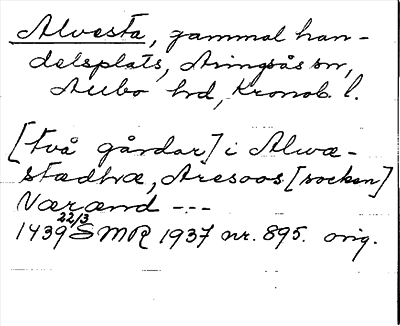 Alvesta, gammal han-
delsplats, Aringsås sn,
Allbo hd, Kronob. l.
[två gårdar] i Alwæ-
stædhæ, Aresoos [socken]
Værænd ---
1439 22/3 SMR 1937 nr. 895. orig.